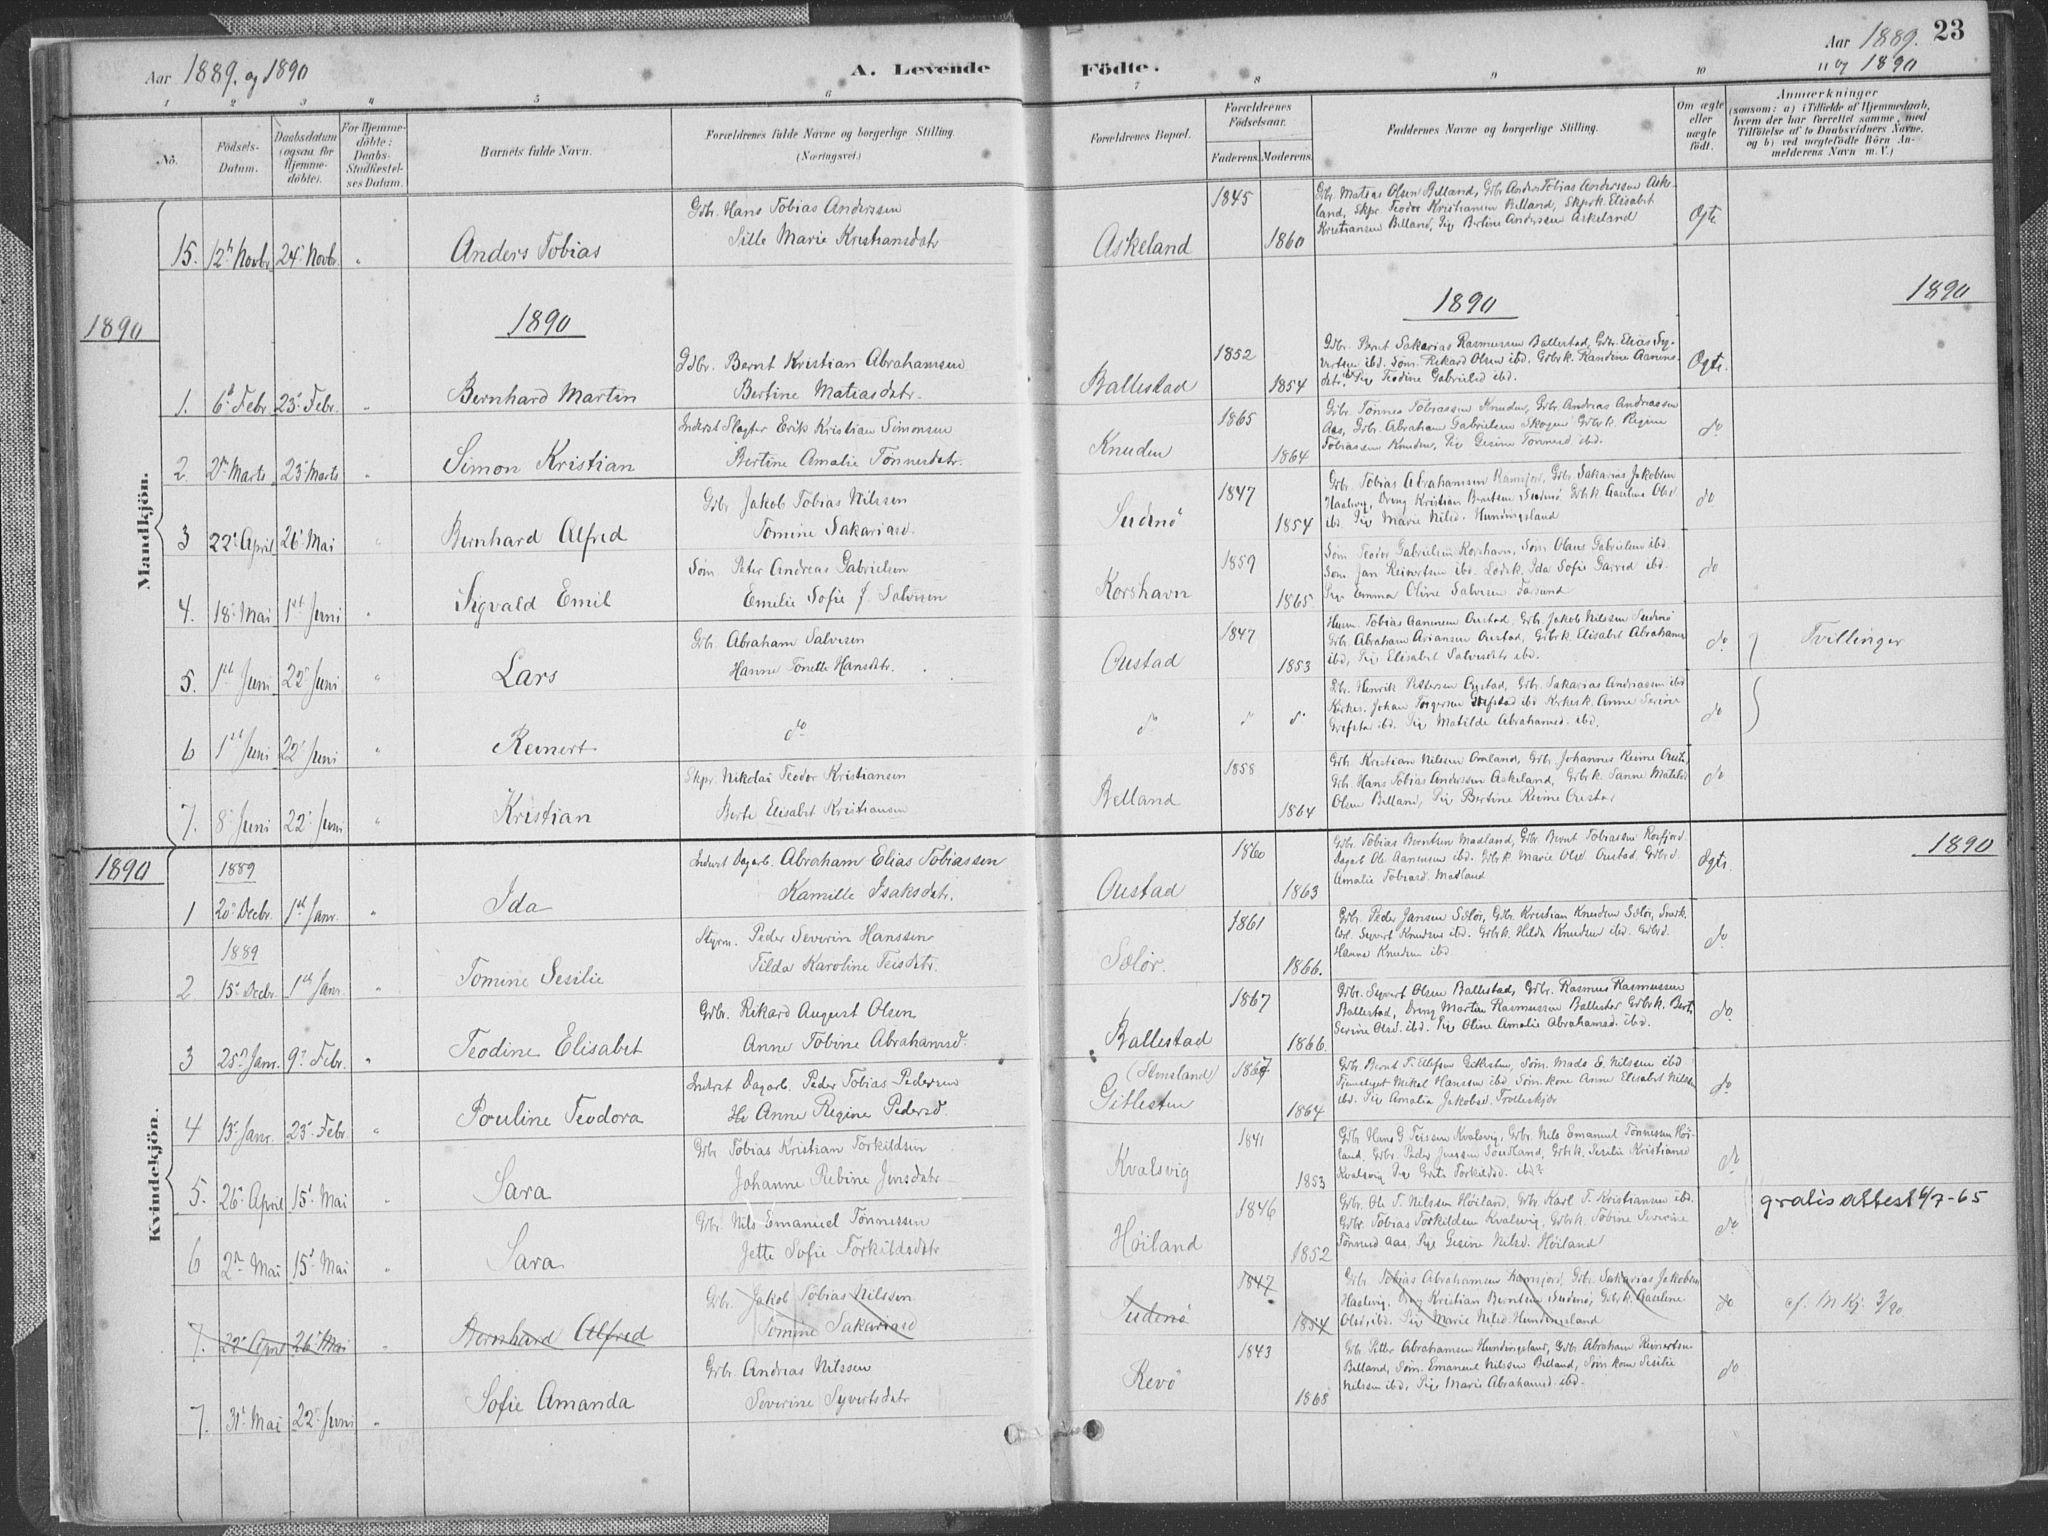 Aar 1889. og 1890
A. Levende Födte.
Aar 1889. 23
og 1890
1 2 3 4 5 6 7 8 9 10
No.
Födsels-Datum.
Daabsdatum (ogsaa for Hjemme-döbte).
For Hjemme-döbte: Daabs-Stadfæstelses Datum.
Barnets fulde Navn.
Forældrenes fulde Navne og borgerlige Stilling.
(Næringsvei.)
Forældrenes Bopæl.
Forældrenes Födselsaar.
Faderens. Moderens.
Faddernes Navne og borgerlige Stilling.
Om ægte eller uægte födt.
Anmærkninger
(saasom: a) i Tilfælde af Hjemmedaab, hvem der har forrettet samme, med Tilföielse af to Daabsvidners Navne, og b) ved uægtefödte Börn Anmelderens Navn m. V.)
Mandkjön.
15. 12te Novbr. 24de Novbr. " Anders Tobias
Gdbr. Hans Tobias Anderssen
Sille Marie Kristiansdtr
Askeland 1845 1860
Gdbr. Matias Olsen Belland, Gdbr. Anders Tobias Anderssen Aske-
land, Skpr. Teodor Kristiansen Belland, Skprk. Elisabet
Kristiansen Belland, Pige Bertine Andersen Askeland
Ægte
1890 1890 1890 1890
1. 6te Febr. 23de Febr. " Bernhard Martin
Gdbr. Bernt Kristian Abrahamsen
Bertine Matiasdtr.
Ballestad 1852 1854
Gdbr. Bernt Sakarias Rasmussen Ballestad, Gdbr. Elias Sy-
vertsen ibd. Søm. Rikard Olsen ibd. Gdbrk. Randine Aanens-
datr. ibd. Pige Teodine Gabrielsd ibd.
Ægte.
2. 2den Marts 23de Marts " Simon Kristian
Inderst Slagter Erik Kristian Simonsen
Bertine Amalie Tønnesdatr.
Knuden 1865 1864
Gdbr. Tønnes Tobiassen Knuden, Gdbr. Andreas Andreassen
Aas, Gdbr. Abraham Gabrielsen Skogen Gdbrk. Regine
Tobiassen Knuden, Pige Gesine Tønnesd ibd.
do
3 22de April 26de Mai " Bernhard Alfred
Gdbr Jakob Tobias Nilssen
Tomine Sakariasd.
Sudenø 1847 1854
Gdbr. Tobias Abrahamsen Ramsjord, Gdbr. Sakarias Jakobsen
Haalvig, Dreng Kristian Berntsen Sudenø Gdbrk. Aaselene Olsd
ibd. Pige Marie Nilsd. Hundingsland
do
4. 18de Mai 1ste Juni " Sigvald Emil
Søm Peter Andreas Gabrielsen
Emilie Sofie f. Salvesen
Korshavn 1859 1865
Søm Teodor Gabrielsen Korshavn, Søm Olaus Gabrielsen ibd.
Søm. Jan Reinertsen ibd. Lodsk. Ida Sofie Garred ibd.
Pige Emma Oline Salvesen Farsund
do
5. 1ste Juni 22de Juni " Lars
Gdbr. Abraham Salvesen
Hanne Tonette Hansdtr.
Oustad 1847 1853
Husm. Tobias Aanensen Oustad, Gdbr. Jakob Nilssen Sudenø
Gdbr. Abraham Ariansen Oustad, Gdbrk. Elisabet Abrahams
ibd, Pige Elisabet Salvesdtr ibd.
do Tvillinger
6 1ste Juni 22de Juni " Reinert
do do do do
Gdbr. Henrik Pettersen Oustad, Gdbr. Sakarias Andreassen ibd
Kirkes. Johan Torgersen Grefstad ibd Kirkesk. Anne Serine
Grefstad ibd. Pige Matilde Abrahamsd. ibd.
do
7. 8de Juni 22de Juni " Kristian
Skpr. Nikolai Teodor Kristiansen
Berte Elisabet Kristiansen
Belland 1858 1864
Gdbr. Kristian Nilssen Omland, Gdbr Johannes Reime Oust.
Gdbr. Hans Tobias Anderssen Askeland, Gdbrk. Sanne Matilde
Olsen Belland, Pige Bertine Reime Oustad
do
Kvindekjön.
1890 1889 1890
1 20de Decbr. 1ste Janr. " Ida
Inderst Dagarb. Abraham Elias Tobiassen
Kamille Isaksdatr.
Oustad 1860 1863
Gdbr. Tobias Berntsen Madland, Gdbr Bernt Tobiassen Rosfjord
Dagarb Ole Aanensen ibd. Gdbrk. Marie Olsd Oustad, Gdbrd.
Amalie Tobiasd. Madland
Ægte.
1889
2 15de Decbr. 1ste Janr. " Tomine Sesilie
Styrm. Peder Severin Hanssen
Tilda Karoline Teisdtr.
Sælør. 1861 1866.
Gdbr. Peder Jansen Sælør, Gdbr. Kristian Knudsen Sælør,
Syvert Knudsen ibd. Gdbrk. Hilda Knudsen ibd. Gdbrd.
Hanna Knudsen ibd.
do
3 25de Janr. 9de Febr. " Teodine Elisabet
Gdbr. Rikard August Olsen
Anne Tobine Abrahamsd.
Ballestad 1867 1866.
Gdbr. Syvert Olsen Ballestad, Gdbr. Rasmus Rasmussen
Ballestad, Dreng Martin Rasmussen Ballestad Gdbrk. Berte
Serine Olsd. ibd. Pige Oline Amalie Abrahamsd. ibd.
do
4 13de Janr. 23de Febr. " Pouline Teodora
Inderst Dagarb. Peder Tobias Pedersen
Hu Anne Regine Pedersd.
(Stensland)
Gitlesten 1867 1864
Gdbr. Bernt T. Ellefsen Gitlesten, Søm. Mads E. Nilssen ibd
Mikal Hanssen ibd Søm.kone Anne Elisabet Nilssen
ibd. Pige Amalia Jakobsd. Trolleskjær
do
5. 26de April 15de Mai " Sara
Gdbr Tobias Kristian Torkildsen
Johanne Rebine Jensdatr.
Kvalsvig 1841 1853
Gdbr Hans G Teissen Kvalsvig, Gdbr. Nils Emanuel Tønnessen Høi-
land, Gdbr. Peder Jenssen Søndland, Gdbrk. Sesilie Kristiansd
Kvalsvig Pige Grete Torkildsd. ibd.
do
6 2den Mai 15de Mai " Sara
Gdbr. Nils Emanuel Tønnessen
Jette Sofie Torkildsdtr
Høiland 1846 1852
Gdbr. Ole T. Nilssen Høiland, Gdbr Karl T. Kristiansen ibd.
Gdbr. Tobias Torkildsen Kvalsvig, Gdbrk. Tobine Severine
Tønnesd Aas, Pige Gesine Nilsd. Høiland
do gratis attest 6/7-65
7. 22de April 26de Mai " Bernhard Alfred
Gdbr. Jakob Tobias Nilssen
Tomine Sakariasd
Sudenø 1847 1854
Gdbr. Tobias Abrahamsen Ramsjord, Gdbr. Sakarias Jakobsen
Haalvig, Dreng Kristian Berntsen Sudenø, Gdbrk. Aaselene
Olsd. ibd. Pige Marie Nilsd. Hundingsland
do cf. M Kj. 3/90
7. 31te Mai 22de Juni " Sofie Amanda
Gdbr. Andreas Nilssen
Severine Syvertsdatr
Revø 1843 1868
Gdbr Petter Abrahamsen Hundingsland, Gdbr Abraham Reinertsen
Belland, Søm. Emanuel Nilssen Belland, Søm kone Sesilie
Nilssen ibd, Pige Marie Abrahamsd. ibd.
do